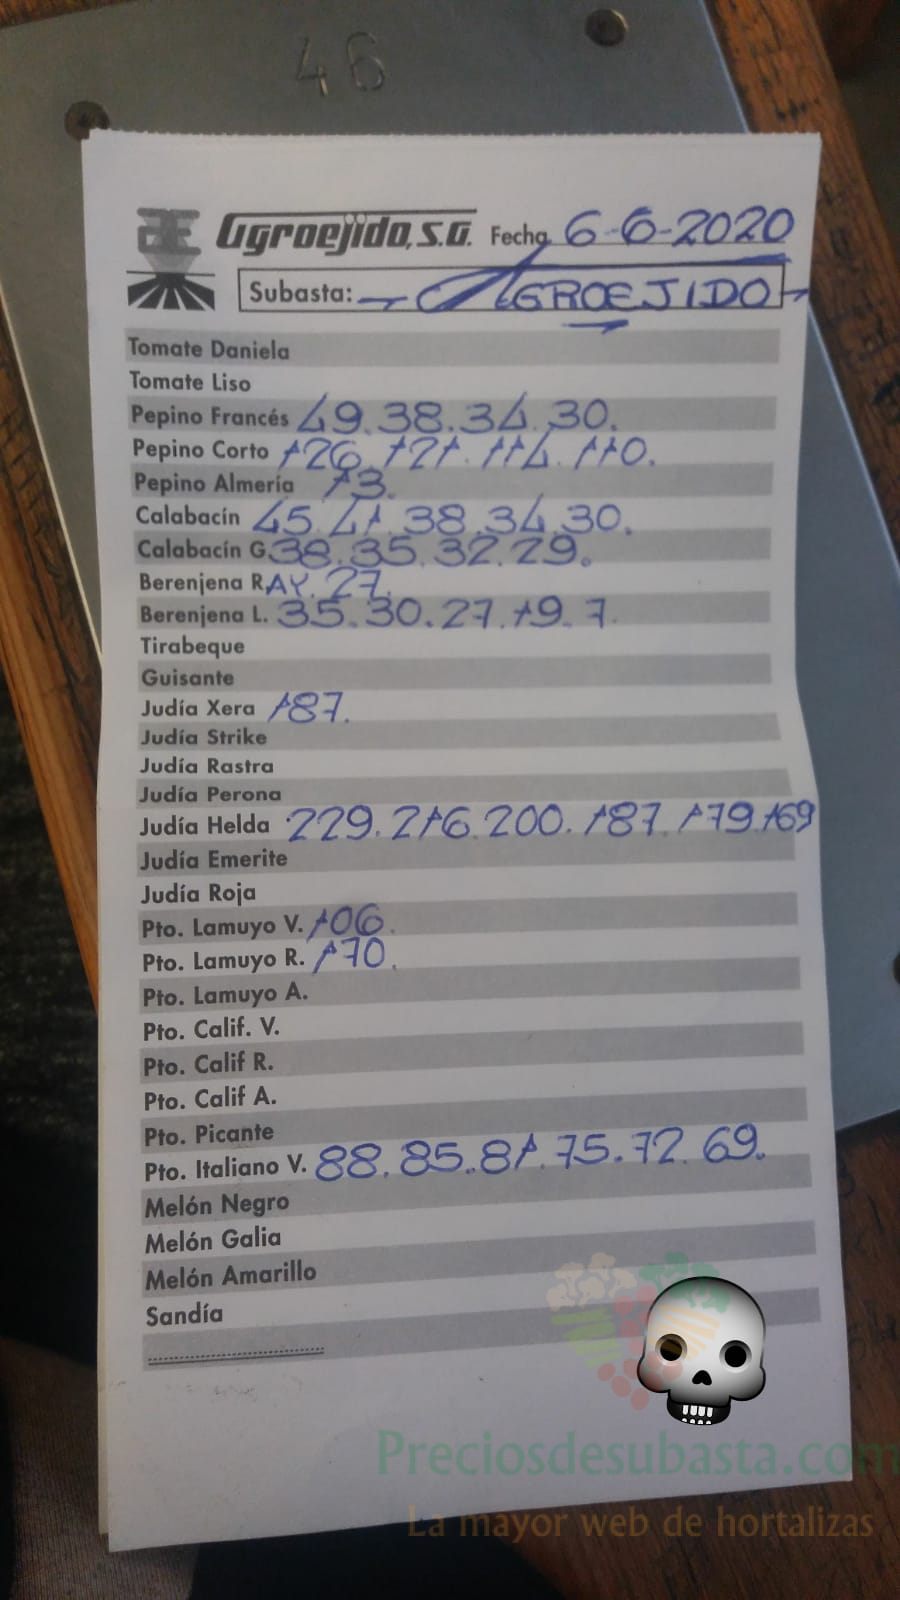 46
Agroejido, S.A. Fecha 6-6-2020
Subasta: AGROEJIDO
Tomate Daniela
Tomate Liso
Pepino Francés 49.38.34.30.
Pepino Corto 126.121.114.110.
Pepino Almería 13.
Calabacín 45.41.38.34.30.
Calabacín G. 38.35.32.29.
Berenjena RAY. 27.
Berenjena L. 35.30.27.19.7.
Tirabeque
Guisante
Judía Xera 187.
Judía Strike
Judía Rastra
Judía Perona
Judía Helda 229.216.200.187.179.169
Judía Emerite
Judía Roja
Pto. Lamuyo V. 106.
Pto. Lamuyo R. 170.
Pto. Lamuyo A.
Pto. Calif. V.
Pto. Calif R.
Pto. Calif A.
Pto. Picante
Pto. Italiano V. 88.85.81.75.72.69.
Melón Negro
Melón Galia
Melón Amarillo
Sandía
Preciosdesubasta.com
La mayor web de hortalizas